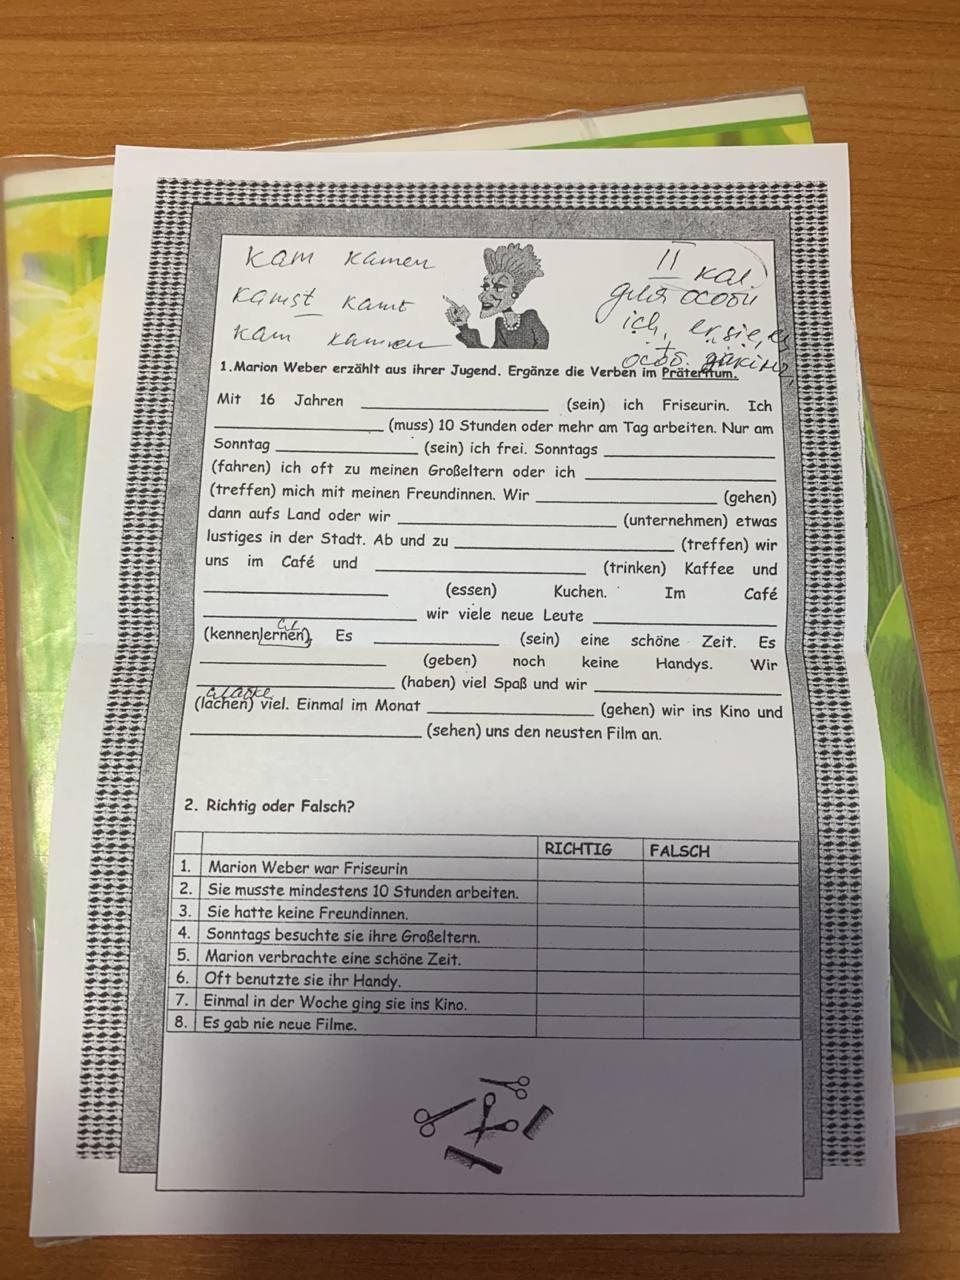 кам камен
камst камt
кам камен
II кол.
для особи
ich, er, sie, es
1.Marion Weber erzählt aus ihrer Jugend. Ergänze die Verben im Präteritum.
Mit 16 Jahren ____________ (sein) ich Friseurin. Ich
____________ (muss) 10 Stunden oder mehr am Tag arbeiten. Nur am
Sonntag ____________ (sein) ich frei. Sonntags ____________
(fahren) ich oft zu meinen Großeltern oder ich ____________
(treffen) mich mit meinen Freundinnen. Wir ____________ (gehen)
dann aufs Land oder wir ____________ (unternehmen) etwas
lustiges in der Stadt. Ab und zu ____________ (treffen) wir
uns im Café und ____________ (trinken) Kaffee und
____________ (essen) Kuchen. Im Café
____________ wir viele neue Leute ____________
(kennenlernen). Es ____________ (sein) eine schöne Zeit. Es
____________ (geben) noch keine Handys. Wir
____________ (haben) viel Spaß und wir ____________
(lachen) viel. Einmal im Monat ____________ (gehen) wir ins Kino und
____________ (sehen) uns den neusten Film an.
2. Richtig oder Falsch?
RICHTIG FALSCH
1. Marion Weber war Friseurin
2. Sie musste mindestens 10 Stunden arbeiten.
3. Sie hatte keine Freundinnen.
4. Sonntags besuchte sie ihre Großeltern.
5. Marion verbrachte eine schöne Zeit.
6. Oft benutzte sie ihr Handy.
7. Einmal in der Woche ging sie ins Kino.
8. Es gab nie neue Filme.